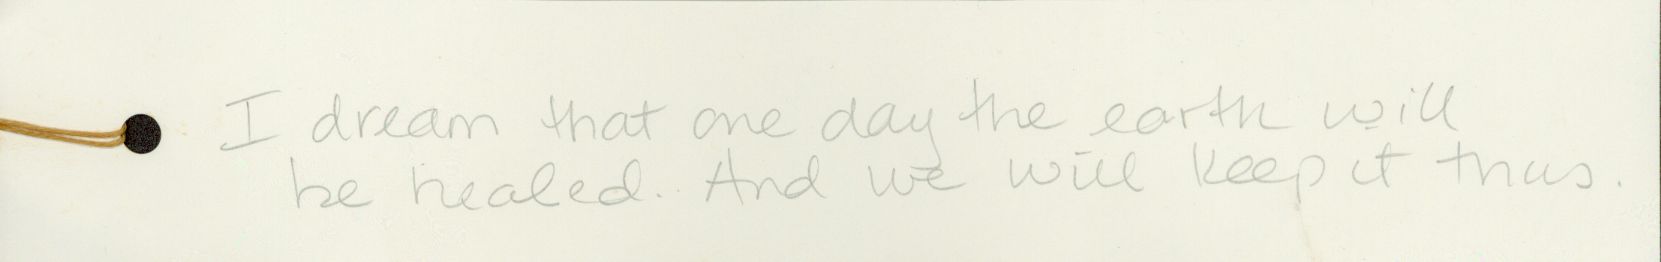 I dream that one day the earth will
be healed. And we will keep it thus.